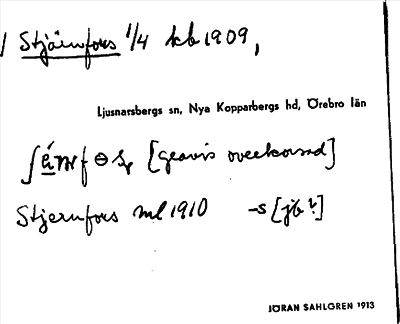 Stjärnfors 1/4 kb 1909,
Ljusnarsbergs sn, Nya Kopparbergs hd, Örebro län
[gravis överkorsad]
Stjernfors ml 1910 -s [jb?]
JÖRAN SAHLGREN 1913